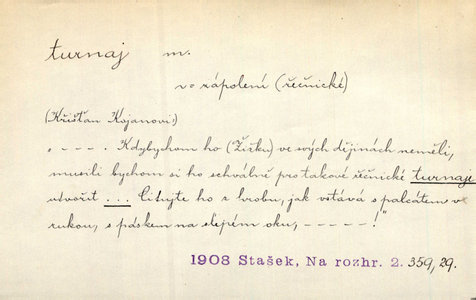 turnaj m.
v= zápolení (řečnické)
(Křišťan Kojanovi:)
„ - - - - . Kdybychom ho (Žižku) ve svých dějinách neměli,
musili bychom si ho schválně pro takové řečnické turnaje
utvořit . . . Cítíte ho z hrobu, jak vstává s palcátem v
rukou, s páskem na slepém oku, - - - - - !"
1908 Stašek, Na rozhr. 2. 359, 29.